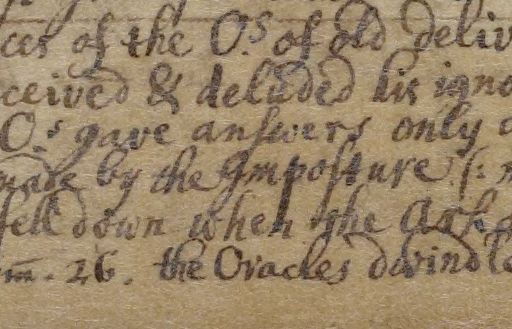 ces of the O.s of old deliv
ceived & deluded his igno
O.s gave answers only
made by the Imposture (:
fell down when the Ark
m̅. 26. the Oracles dwindle